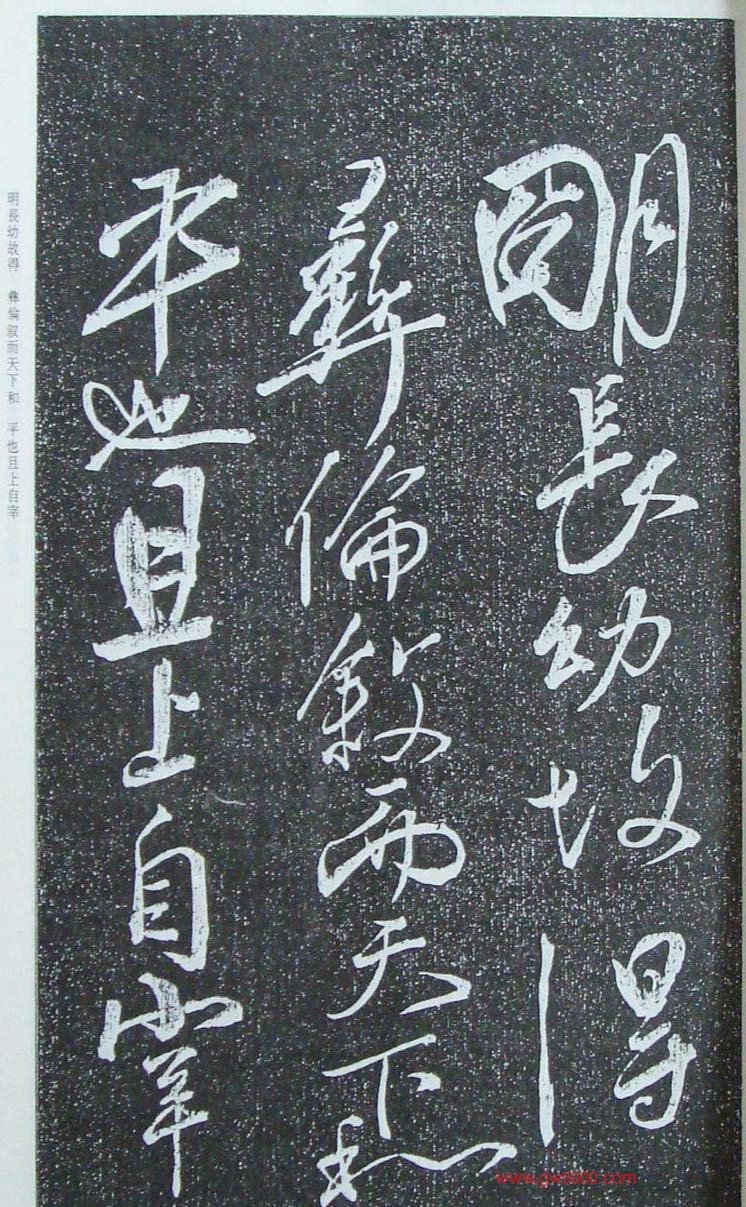 明長幼故得
彝倫敘而天下和
平也且上自宰
明長幼故得 彝倫叙而天下和 平也且上自宰
www.gw5000.com